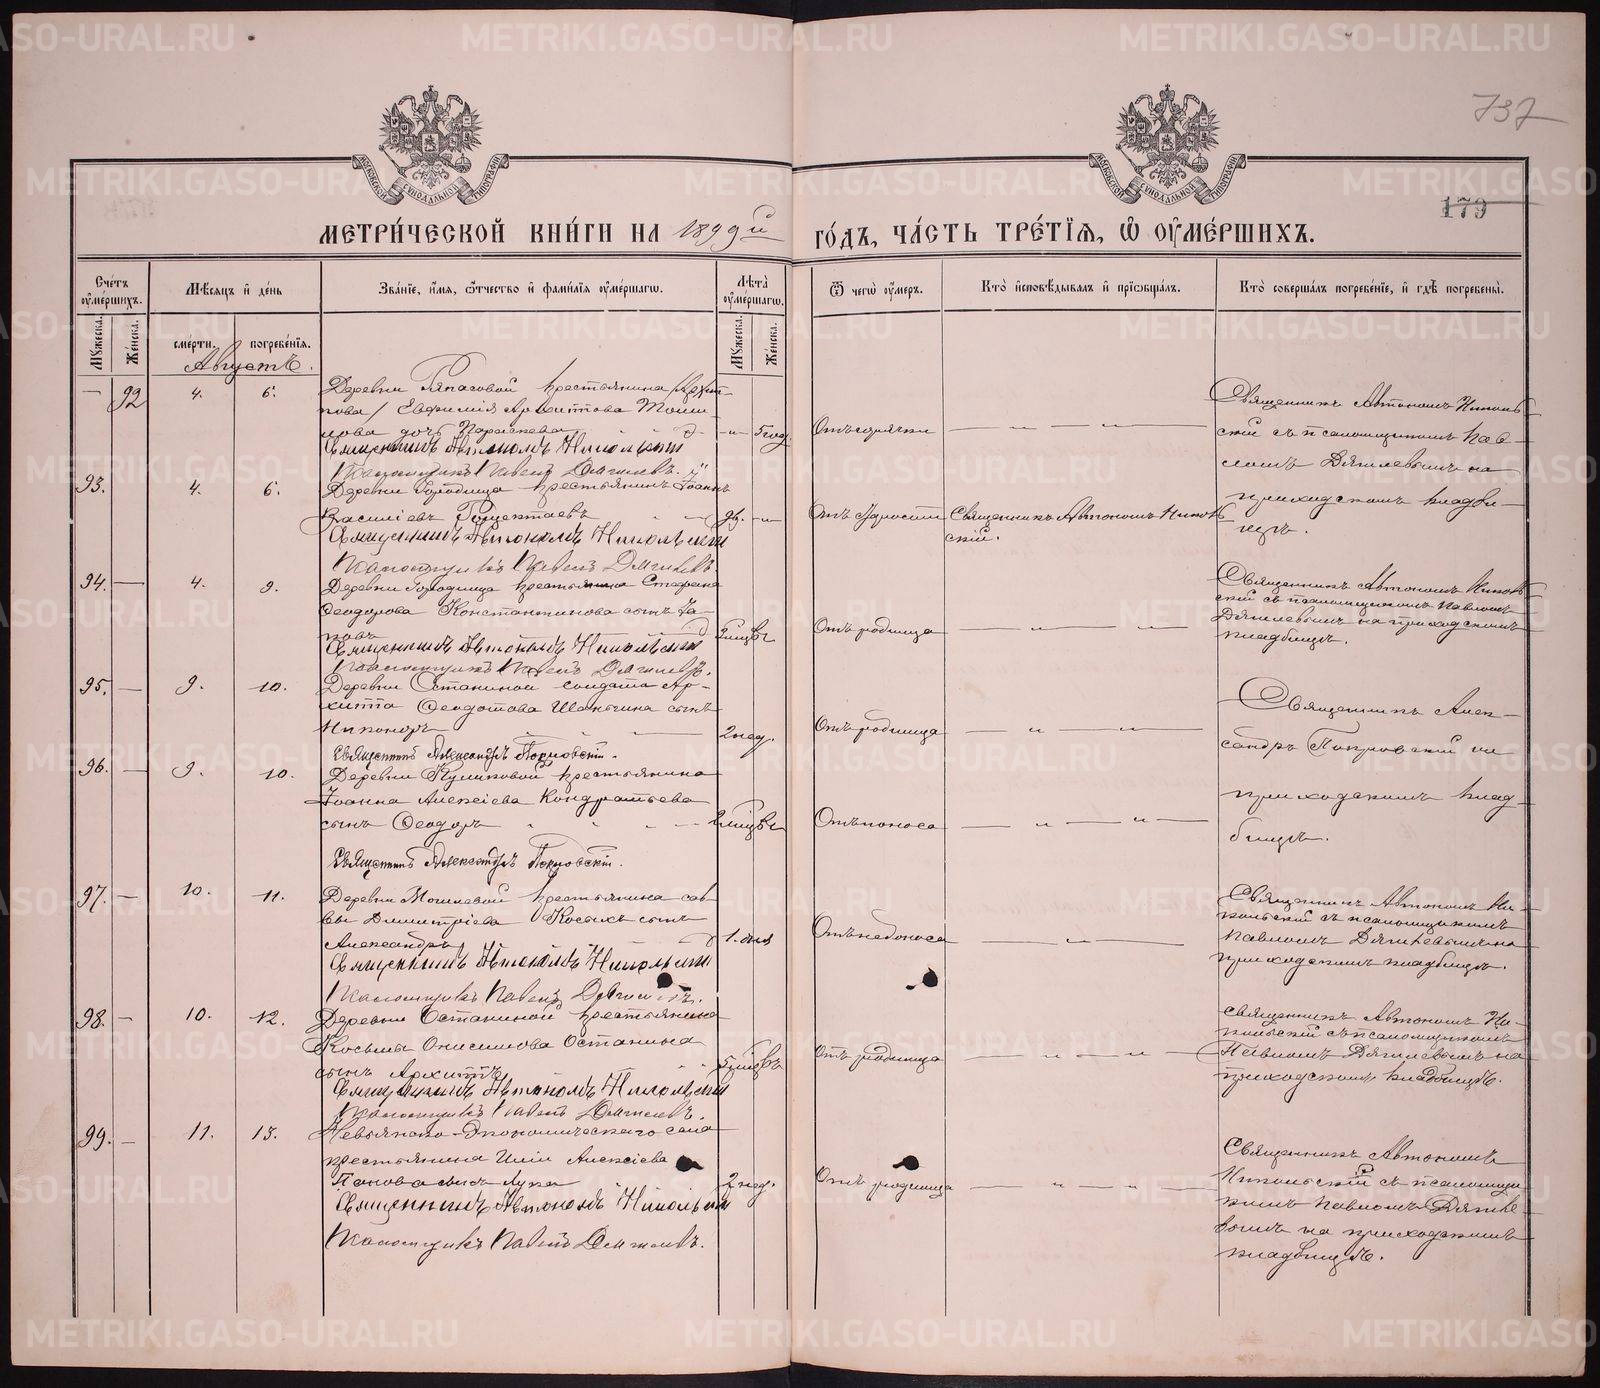 METRIKI.GASO-URAL.RU
737
179
МОСКОВСКОЙ СѴНОДАЛЬНОЙ ТИПОГРАФІИ
МЕТРИ́ЧЕСКОЙ КНИ́ГИ НА 1899й ГО́ДЪ, ЧА́СТЬ ТРЕ́ТІЯ, Ѡ ОУМЕ́РШИХЪ.
Сче́тъ оуме́ршихъ.
Му́жеска.
Же́нска.
Мѣ́сяцъ и де́нь
сме́рти.
погребе́нїя.
Зва́нїе, и́мя, ѻ́тчество и фами́лїя оуме́ршагѡ.
Лѣ́та оуме́ршагѡ.
Му́жеска.
Же́нска.
Ѿ чегѡ̀ оу́меръ.
Кто̀ и҆сповѣ́дывалъ и прїѡбща́лъ.
Кто̀ соверша́лъ погребе́нїе, и гдѣ̀ погребены̀.
Августъ.
— 92 4. 6.
Деревни крестьянина /Архип-
пова/ Евфимія Архиппова
дочь Параскева — „ — 5 год.
Священникъ Автономъ Никольскій
Псаломщикъ Павелъ Дягилевъ.
Отъ горячки — „ — „ —
Священникъ Автономъ Николь-
скій съ псаломщикомъ Пав-
ломъ Дягилевымъ на
приходскомъ кладби-
щѣ.
93. 4. 6.
Деревни Городища крестьянинъ Іоаннъ
Василіевъ — „ —
Священникъ Автономъ Никольскій
Псаломщикъ Павелъ Дягилевъ.
Отъ старости
Священникъ Автономъ Николь-
скій.
94. — 4. 9.
Деревни Городища крестьянина Стефана
Ѳеодорова Константинова сынъ
Священникъ Автономъ Никольскій
Псаломщикъ Павелъ Дягилевъ.
Отъ родимца — „ — „ —
Священникъ Автономъ Николь-
скій съ псаломщикомъ Павломъ
Дягилевымъ на приходскомъ
кладбищѣ.
95. — 9. 10.
Деревни Останиной солдата Ар-
хиппа Ѳеодотова Шаньгина сынъ
Никаноръ 2 нед.
Священникъ Александръ Покровскій.
Отъ родимца — „ — „ —
Священникъ Алек-
сандръ Покровскій на
приходскомъ клад-
бищѣ.
96. — 9. 10.
Деревни Куликовой крестьянина
Іоанна Алексіева Кондратьева
сынъ Ѳеодоръ 2 мѣсяцевъ
Священникъ Александръ Покровскій.
Отъ поноса — „ — „ —
97. — 10. 11.
Деревни Могилевой крестьянина Сав-
вы Димитріева Косыхъ сынъ
Александръ 1. дня
Священникъ Автономъ Никольскій
Псаломщикъ Павелъ Дягилевъ.
Отъ недоноса — „ —
Священникъ Автономъ Ни-
кольскій съ псаломщикомъ
Павломъ Дягилевымъ на
приходскомъ кладбищѣ.
98. — 10. 12.
Деревни Останиной крестьянина
Косьмы Онисимова Останина
сынъ Архиппъ 5 мѣсяцевъ
Священникъ Автономъ Никольскій
Псаломщикъ Павелъ Дягилевъ.
Отъ родимца — „ — „ —
Священникъ Автономъ Ни-
кольскій съ псаломщикомъ
Павломъ Дягилевымъ на
приходскомъ кладбищѣ.
99. — 11. 13.
Невьянско-Экономическаго села
крестьянина Иліи Алексіева
Панова сынъ Лука 2 нед.
Священникъ Автономъ Никольскій
Псаломщикъ Павелъ Дягилевъ.
Отъ родимца — „ — „ —
Священникъ Автономъ
Никольскій съ псаломщи-
комъ Павломъ Дягиле-
вымъ на приходскомъ
кладбищѣ.